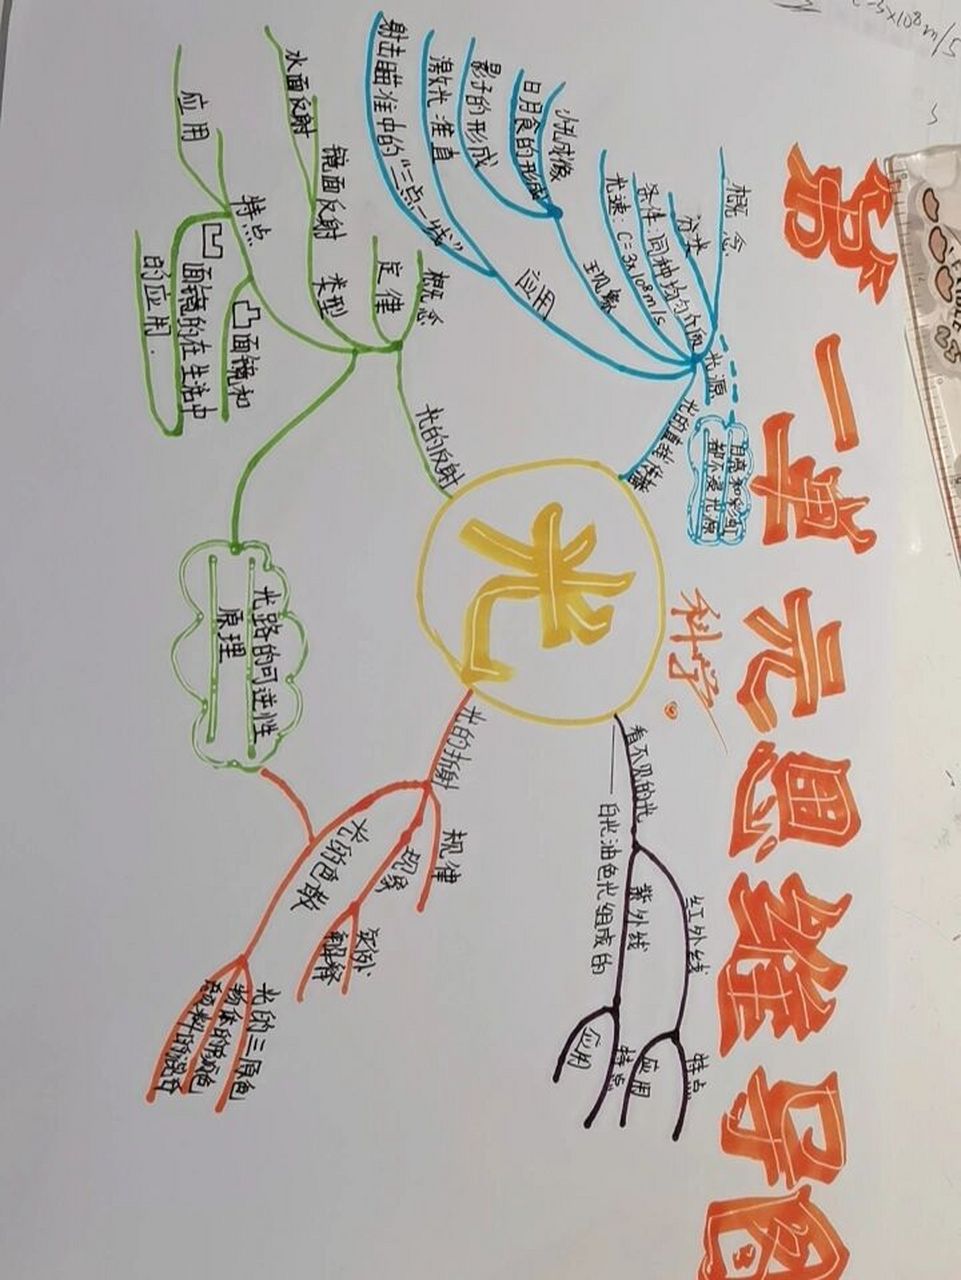 第一单元思维导图
科学
光
光的直线传播
光源
月亮和彩虹
都不是光源
概念
分类
条件:同种均匀介质
光速:C=3×10⁸m/s
现象
小孔成像
日月食的形成
影子的形成
应用
激光准直
射击瞄准中的“三点一线”
光的反射
概念
定律
类型
镜面反射
水面反射
特点
应用
凸面镜和
凹面镜的在生活中
的应用.
光路的可逆性
原理
光的折射
规律
现象
实例
解释
光的色散
光的三原色
物体的颜色
颜料的混合
看不见的光
红外线
特点
应用
紫外线
特点
应用
白光油色光组成的